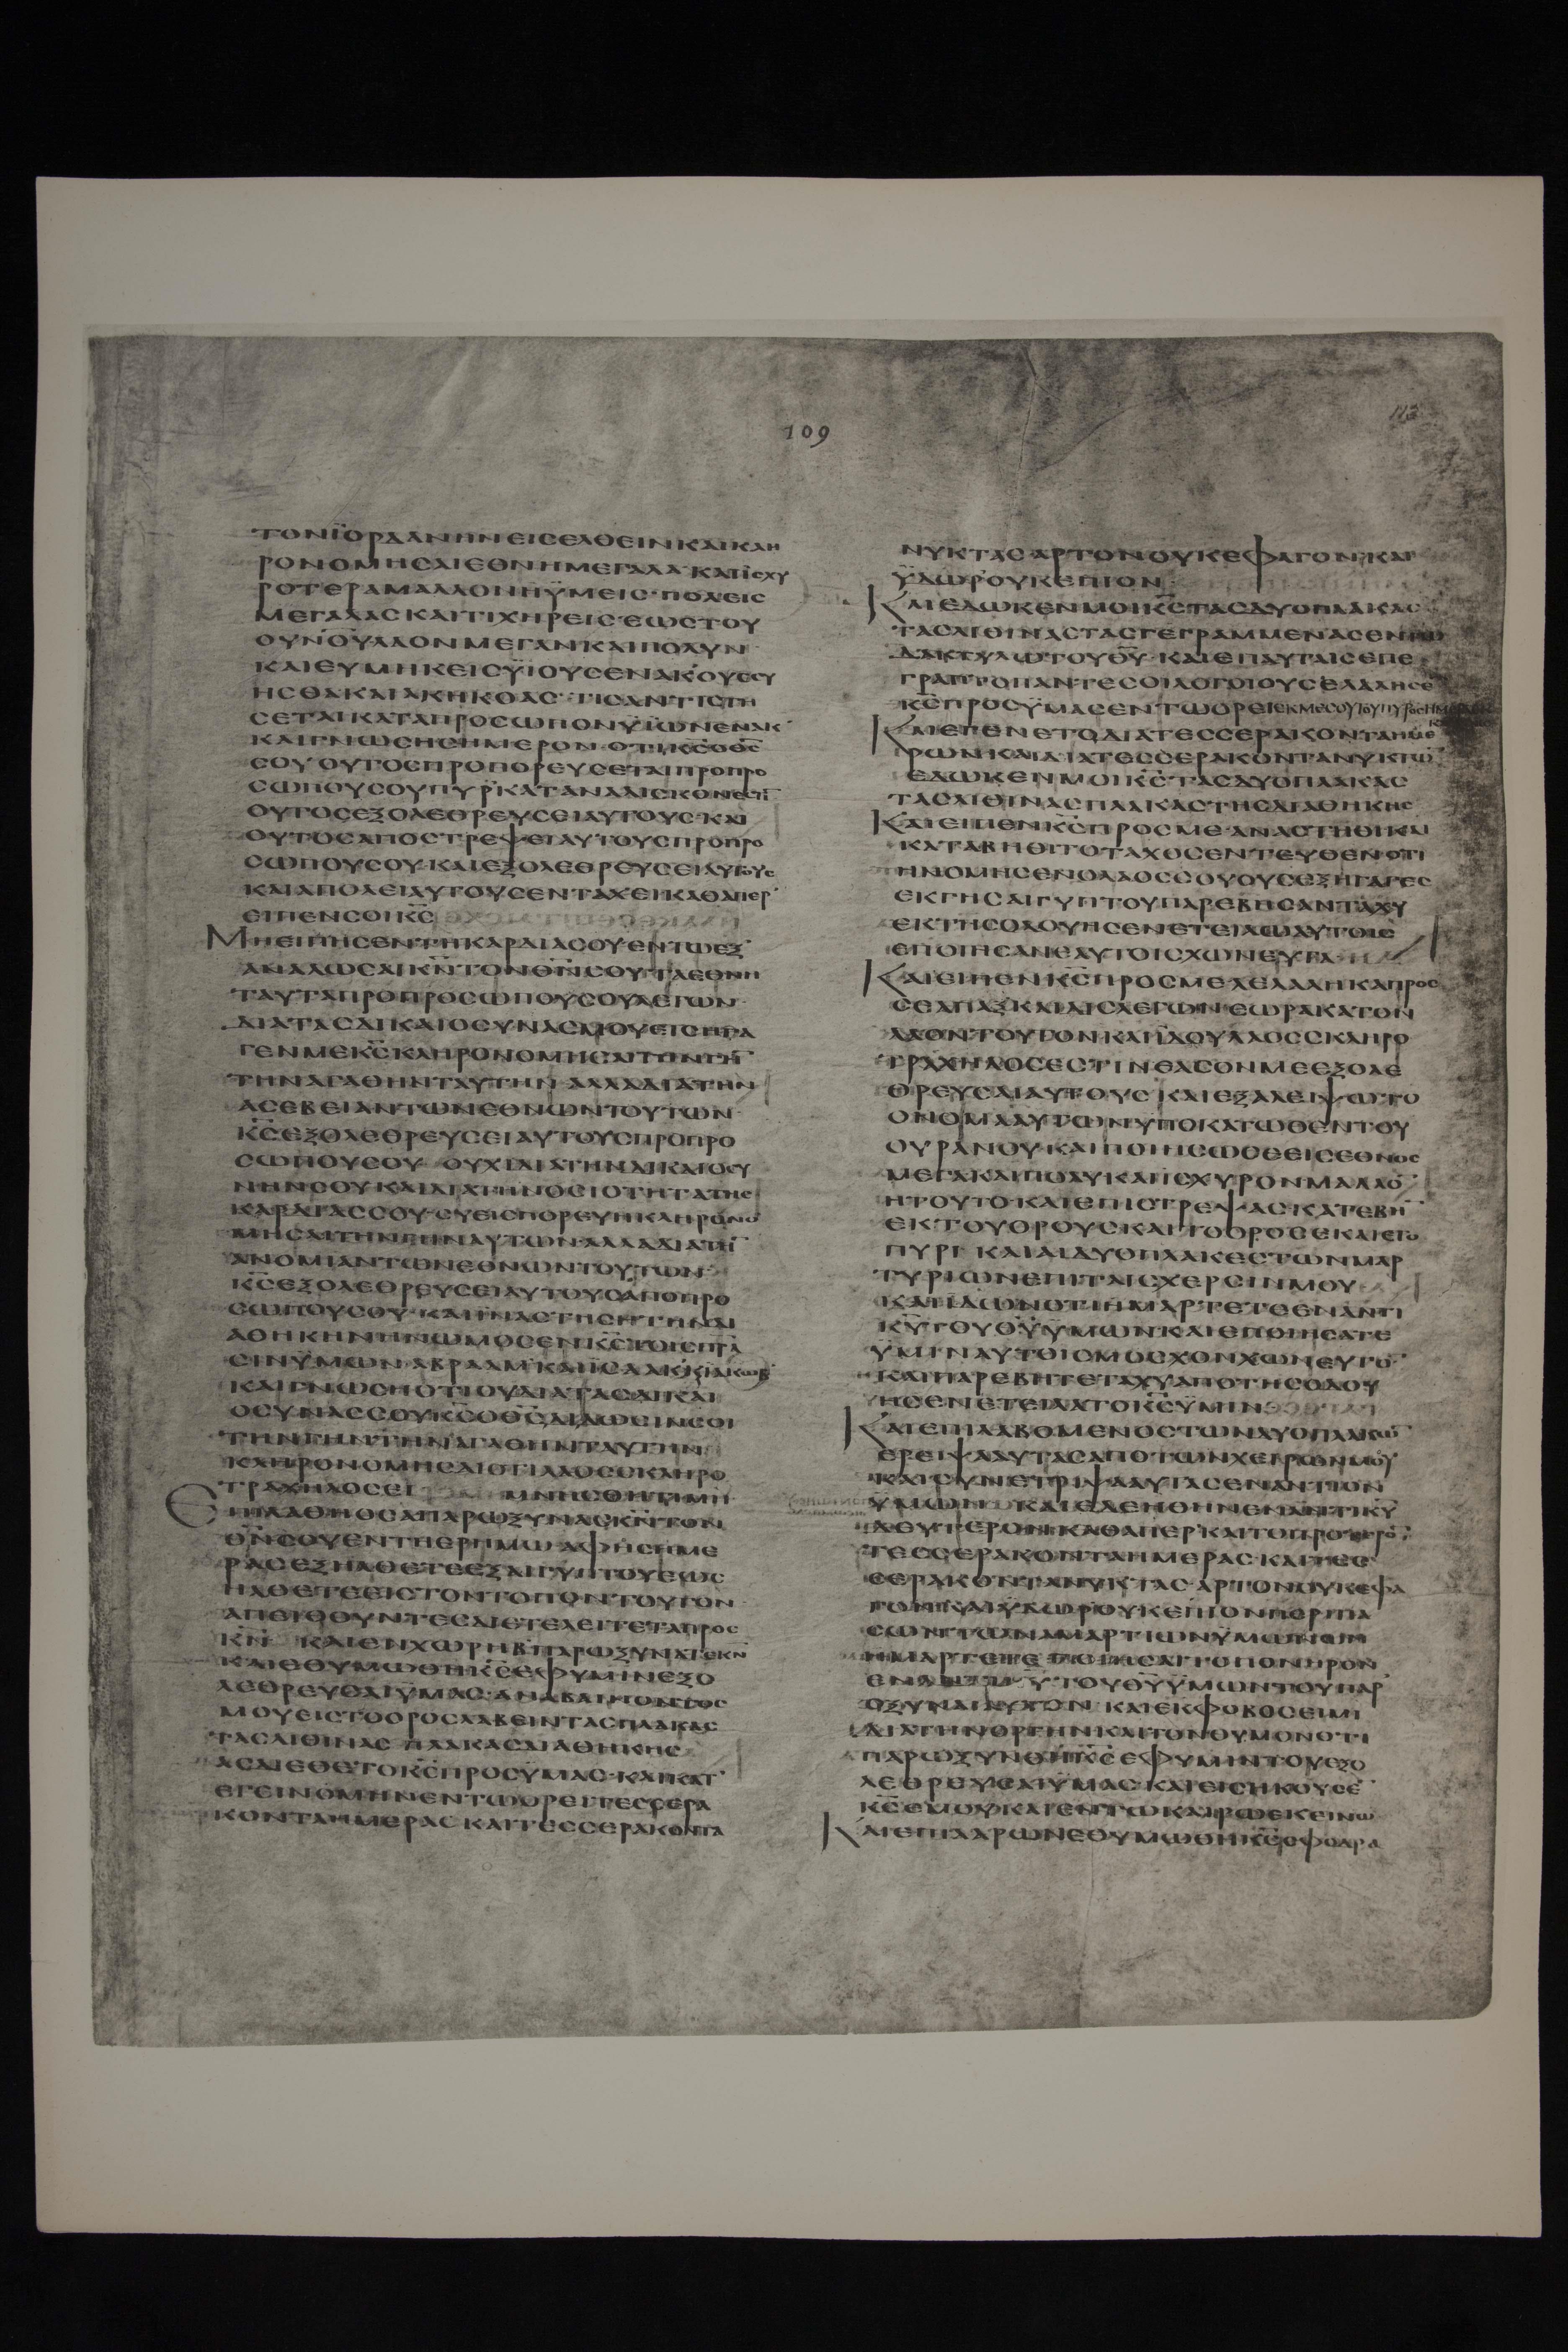 109
113
ΤΟΝΪΟΡΔΑΝΗΝΕΙΣΕΛΘΕΙΝΚΑΙΚΛΗ
ΡΟΝΟΜΗΣΑΙΕΘΝΗΜΕΓΑΛΑ·ΚΑΙΪΣΧΥ
ΡΟΤΕΡΑΜΑΛΛΟΝΗΫΜΕΙΣ·ΠΟΛΕΙΣ
ΜΕΓΑΛΑΣΚΑΙΤΙΧΗΡΕΙΣ·ΕΩΣΤΟΥ
ΟΥΝΟΥΛΑΟΝΜΕΓΑΝΚΑΙΠΟΛΥΝ
ΚΑΙΕΥΜΗΚΕΙΣΫΙΟΥΣΕΝΑΚ
ΗΣΘΑΚΑΙΑΚΗΚΟΑΣ·ΤΙΣΑΝΤΙΣΤΗ
ΣΕΤΑΙΚΑΤΑΠΡΟΣΩΠΟΝΫΪΩΝΕΝΑΚ
ΚΑΙΓΝΩΣΗΣΗΜΕΡΟΝ·ΟΤΙΚΣΟΘΣ
ΣΟΥΟΥΤΟΣΠΡΟΠΟΡΕΥΣΕΤΑΙΠΡΟΠΡΟ
ΣΩΠΟΥΣΟΥΠΥΡΚΑΤΑΝΑΛΙΣΚΟΝΕΣΤΙ
ΟΥΤΟΣΕΞΟΛΕΘΡΕΥΣΕΙΑΥΤΟΥΣΚΑΙ
ΟΥΤΟΣΑΠΟΣΤΡΕΨΕΙΑΥΤΟΥΣΠΡΟΠΡΟ
ΣΩΠΟΥΣΟΥ·ΚΑΙΕΞΟΛΕΘΡΕΥΣΕΙΑΥΤΟΥΣ
ΚΑΙΑΠΟΛΕΙΑΥΤΟΥΣΕΝΤΑΧΕΙΚΑΘΑΠΕΡ
ΕΙΠΕΝΣΟΙΚΣ
ΜΗΕΙΠΗΣΕΝΤΗΚΑΡΔΙΑΣΟΥ·ΕΝΤΩΕΞ
ΑΝΑΛΩΣΑΙΚΝΤΟΝΘΝΣΟΥΤΑΕΘΝΗ
ΤΑΥΤΑΠΡΟΠΡΟΣΩΠΟΥΣΟΥΛΕΓΩΝ
ΔΙΑΤΑΣΔΙΚΑΙΟΣΥΝΑΣΜΟΥΕΙΣΗΓΑ
ΓΕΝΜΕΚΣΚΛΗΡΟΝΟΜΗΣΑΙΤΗΝΓΗ
ΤΗΝΑΓΑΘΗΝΤΑΥΤΗΝ·ΑΛΛΑΔΙΑΤΗΝ
ΑΣΕΒΕΙΑΝΤΩΝΕΘΝΩΝΤΟΥΤΩΝ
ΚΣΕΞΟΛΕΘΡΕΥΣΕΙΑΥΤΟΥΣΠΡΟΠΡΟ
ΣΩΠΟΥΣΟΥ·ΟΥΧΙΔΙΑΤΗΝΔΙΚΑΙΟΣΥ
ΝΗΝΣΟΥΚΑΙΔΙΑΤΗΝΟΣΙΟΤΗΤΑΤΗΣ
ΚΑΡΔΙΑΣΣΟΥ·ΣΥΕΙΣΠΟΡΕΥΗΚΛΗΡΟΝΟ
ΜΗΣΑΙΤΗΝΓΗΝΑΥΤΩΝ·ΑΛΛΑΔΙΑΤΗ
ΑΝΟΜΙΑΝΤΩΝΕΘΝΩΝΤΟΥΤΩΝ
ΚΣΕΞΟΛΕΘΡΕΥΣΕΙΑΥΤΟΥΣΑΠΟΠΡΟ
ΣΩΠΟΥΣΟΥ·ΚΑΙΪΝΑΣΤΗΣΗΤΗΝΔΙ
ΑΘΗΚΗΝΗΝΩΜΟΣΕΝΚΣΤΟΙΣΠΑΤΡΑ
ΣΙΝΫΜΩΝ·ΑΒΡΑΑΜ·ΚΑΙΪΣΑΑΚΚΙΑΚΩΒ
ΚΑΙΓΝΩΣΗΟΤΙΟΥΔΙΑΤΑΣΔΙΚΑΙ
ΟΣΥΝΑΣΣΟΥΚΣΟΘΣΔΙΔΩΣΙΝΣΟΙ
ΤΗΝΓΗΝΤΗΝΑΓΑΘΗΝΤΑΥΤΗΝ
ΚΛΗΡΟΝΟΜΗΣΑΙΟΤΙΛΑΟΣΣΚΛΗΡΟ
ΤΡΑΧΗΛΟΣΕΙ ΜΝΗΣΘΗΤΙΜΗ
ΕΠΙΛΑΘΗΟΣΑΠΑΡΩΞΥΝΑΣΚΝΤΟΝ
ΘΝΣΟΥΕΝΤΗΕΡΗΜΩ·ΑΦΗΣΗΜΕ
ΡΑΣΕΞΗΛΘΕΤΕΕΞΑΙΓΥΠΤΟΥΕΩΣ
ΗΛΘΕΤΕΕΙΣΤΟΝΤΟΠΟΝΤΟΥΤΟΝ
ΑΠΕΙΘΟΥΝΤΕΣΔΙΕΤΕΛΕΙΤΕΤΑΠΡΟΣ
ΚΝ ΚΑΙΕΝΧΩΡΗΒΠΑΡΩΞΥΝΑΤΕΚΝ
ΚΑΙΕΘΥΜΩΘΗΚΣΕΦΥΜΙΝΕΞΟ
ΛΕΘΡΕΥΣΑΙΫΜΑΣ·ΑΝΑΒΑΙΝΟΝΤΟΣ
ΜΟΥΕΙΣΤΟΟΡΟΣΛΑΒΕΙΝΤΑΣΠΛΑΚΑΣ
ΤΑΣΛΙΘΙΝΑΣ ΠΛΑΚΑΣΔΙΑΘΗΚΗΣ
ΑΣΔΙΕΘΕΤΟΚΣΠΡΟΣΥΜΑΣ·ΚΑΙΚΑΤ
ΕΓΕΙΝΟΜΗΝΕΝΤΩΟΡΕΙΤΕΣΣΕΡΑ
ΚΟΝΤΑΗΜΕΡΑΣΚΑΙΤΕΣΣΕΡΑΚΟΝΤΑ
ΝΥΚΤΑΣΑΡΤΟΝΟΥΚΕΦΑΓΟΝ·ΚΑΙ
ΫΔΩΡΟΥΚΕΠΙΟΝ
ΚΑΙΕΔΩΚΕΝΜΟΙΚΣΤΑΣΔΥΟΠΛΑΚΑΣ
ΤΑΣΛΙΘΙΝΑΣΤΑΣΓΕΓΡΑΜΜΕΝΑΣΕΝΤΩ
ΔΑΚΤΥΛΩΤΟΥΘΥ·ΚΑΙΕΠΑΥΤΑΙΣΕΠΕ
ΓΡΑΠΤΟΠΑΝΤΕΣΟΙΛΟΓΟΙΟΥΣΕΛΑΛΗΣΕ
ΚΣΠΡΟΣΫΜΑΣΕΝΤΩΟΡΕΙΕΚΜΕΣΟΥΤΟΥΠΥΡΟΣ
ΚΑΙΕΓΕΝΕΤΟΔΙΑΤΕΣΣΕΡΑΚΟΝΤΑΗΜΕ
ΡΩΝΚΑΙΔΙΑΤΕΣΣΕΡΑΚΟΝΤΑΝΥΚΤΩ
ΕΔΩΚΕΝΜΟΙΚΣΤΑΣΔΥΟΠΛΑΚΑΣ
ΤΑΣΛΙΘΙΝΑΣΠΛΑΚΑΣΤΗΣΔΙΑΘΗΚΗΣ
ΚΑΙΕΙΠΕΝΚΣΠΡΟΣΜΕ·ΑΝΑΣΤΗΘΙΚΑΙ
ΚΑΤΑΒΗΘΙΤΟΤΑΧΟΣΕΝΤΕΥΘΕΝΟΤΙ
ΗΝΟΜΗΣΕΝΟΛΑΟΣΣΟΥΟΥΣΕΞΗΓΑΓΕΣ
ΕΚΓΗΣΑΙΓΥΠΤΟΥΠΑΡΕΒΗΣΑΝΤΑΧΥ
ΕΚΤΗΣΟΔΟΥΗΣΕΝΕΤΕΙΛΩΑΥΤΟΙΣ
ΕΠΟΙΗΣΑΝΕΑΥΤΟΙΣΧΩΝΕΥΜΑ
ΚΑΙΕΙΠΕΝΚΣΠΡΟΣΜΕΛΕΛΑΛΗΚΑΠΡΟΣ
ΣΕΑΠΑΞΚΑΙΔΙΣΛΕΓΩΝΕΩΡΑΚΑΤΟΝ
ΛΑΟΝΤΟΥΤΟΝΚΑΙΪΔΟΥΛΑΟΣΣΚΛΗΡΟ
ΤΡΑΧΗΛΟΣΕΣΤΙΝΕΑΣΟΝΜΕΕΞΟΛΕ
ΘΡΕΥΣΑΙΑΥΤΟΥΣ·ΚΑΙΕΞΑΛΕΙΨΩΤΟ
ΟΝΟΜΑΑΥΤΩΝΥΠΟΚΑΤΩΘΕΝΤΟΥ
ΟΥΡΑΝΟΥ·ΚΑΙΠΟΙΗΣΩΣΕΕΙΣΕΘΝΟΣ
ΜΕΓΑΚΑΙΠΟΛΥΚΑΙΪΣΧΥΡΟΝΜΑΛΛΟ
ΗΤΟΥΤΟ·ΚΑΙΕΠΙΣΤΡΕΨΑΣΚΑΤΕΒΗ
ΕΚΤΟΥΟΡΟΥΣΚΑΙΤΟΟΡΟΣΕΚΑΙΕΤΟ
ΠΥΡΙ ΚΑΙΑΙΔΥΟΠΛΑΚΕΣΤΩΝΜΑΡ
ΤΥΡΙΩΝΕΠΙΤΑΙΣΧΕΡΣΙΝΜΟΥ
ΚΑΙΪΔΩΝΟΤΙΗΜΑΡΤΕΤΕΕΝΑΝΤΙ
ΚΥΤΟΥΘΥΫΜΩΝ·ΚΑΙΕΠΟΙΗΣΑΤΕ
ΫΜΙΝΑΥΤΟΙΣΜΟΣΧΟΝΧΩΝΕΥΤΟ
ΚΑΙΠΑΡΕΒΗΤΕΤΑΧΥΑΠΟΤΗΣΟΔΟΥ
ΗΣΕΝΕΤΕΙΛΑΤΟΚΣΫΜΙΝ
ΚΑΙΕΠΙΛΑΒΟΜΕΝΟΣΤΩΝΔΥΟΠΛΑΚΩ
ΕΡΕΙΨΑΑΥΤΑΣΑΠΟΤΩΝΧΕΙΡΩΝΜΟΥ
ΚΑΙΣΥΝΕΤΡΙΨΑΑΥΤΑΣΕΝΑΝΤΙΟΝ
ΫΜΩΝ ΚΑΙΕΔΕΗΘΗΝΕΝΑΝΤΙΚΥ
ΔΕΥΤΕΡΟΝΚΑΘΑΠΕΡΚΑΙΤΟΠΡΟΤΕΡΟ
ΤΕΣΣΕΡΑΚΟΝΤΑΗΜΕΡΑΣ·ΚΑΙΤΕΣ
ΣΕΡΑΚΟΝΤΑΝΥΚΤΑΣ·ΑΡΤΟΝΟΥΚΕΦΑ
ΓΟΝΚΑΙΫΔΩΡΟΥΚΕΠΙΟΝΠΕΡΙΠΑ
ΣΩΝΤΩΝΑΜΑΡΤΙΩΝΫΜΩΝΩΝ
ΗΜΑΡΤΕΤΕΠΟΙΗΣΑΙΤΟΠΟΝΗΡΟΝ
ΤΟΥΘΥΫΜΩΝΤΟΥΠΑΡ
ΟΞΥΝΑΙΑΥΤΟΝ ΚΑΙΕΚΦΟΒΟΣΕΙΜΙ
ΔΙΑΤΗΝΟΡΓΗΝΚΑΙΤΟΝΘΥΜΟΝΟΤΙ
ΠΑΡΩΞΥΝΘΗΚΣΕΦΥΜΙΝΤΟΥΕΞΟ
ΛΕΘΡΕΥΣΑΙΫΜΑΣ·ΚΑΙΕΙΣΗΚΟΥΣΕ
ΚΣΕΜΟΥΚΑΙΕΝΤΩΚΑΙΡΩΕΚΕΙΝΩ
ΚΑΙΕΠΙΑΑΡΩΝΕΘΥΜΩΘΗΚΣΣΦΟΔΡΑ